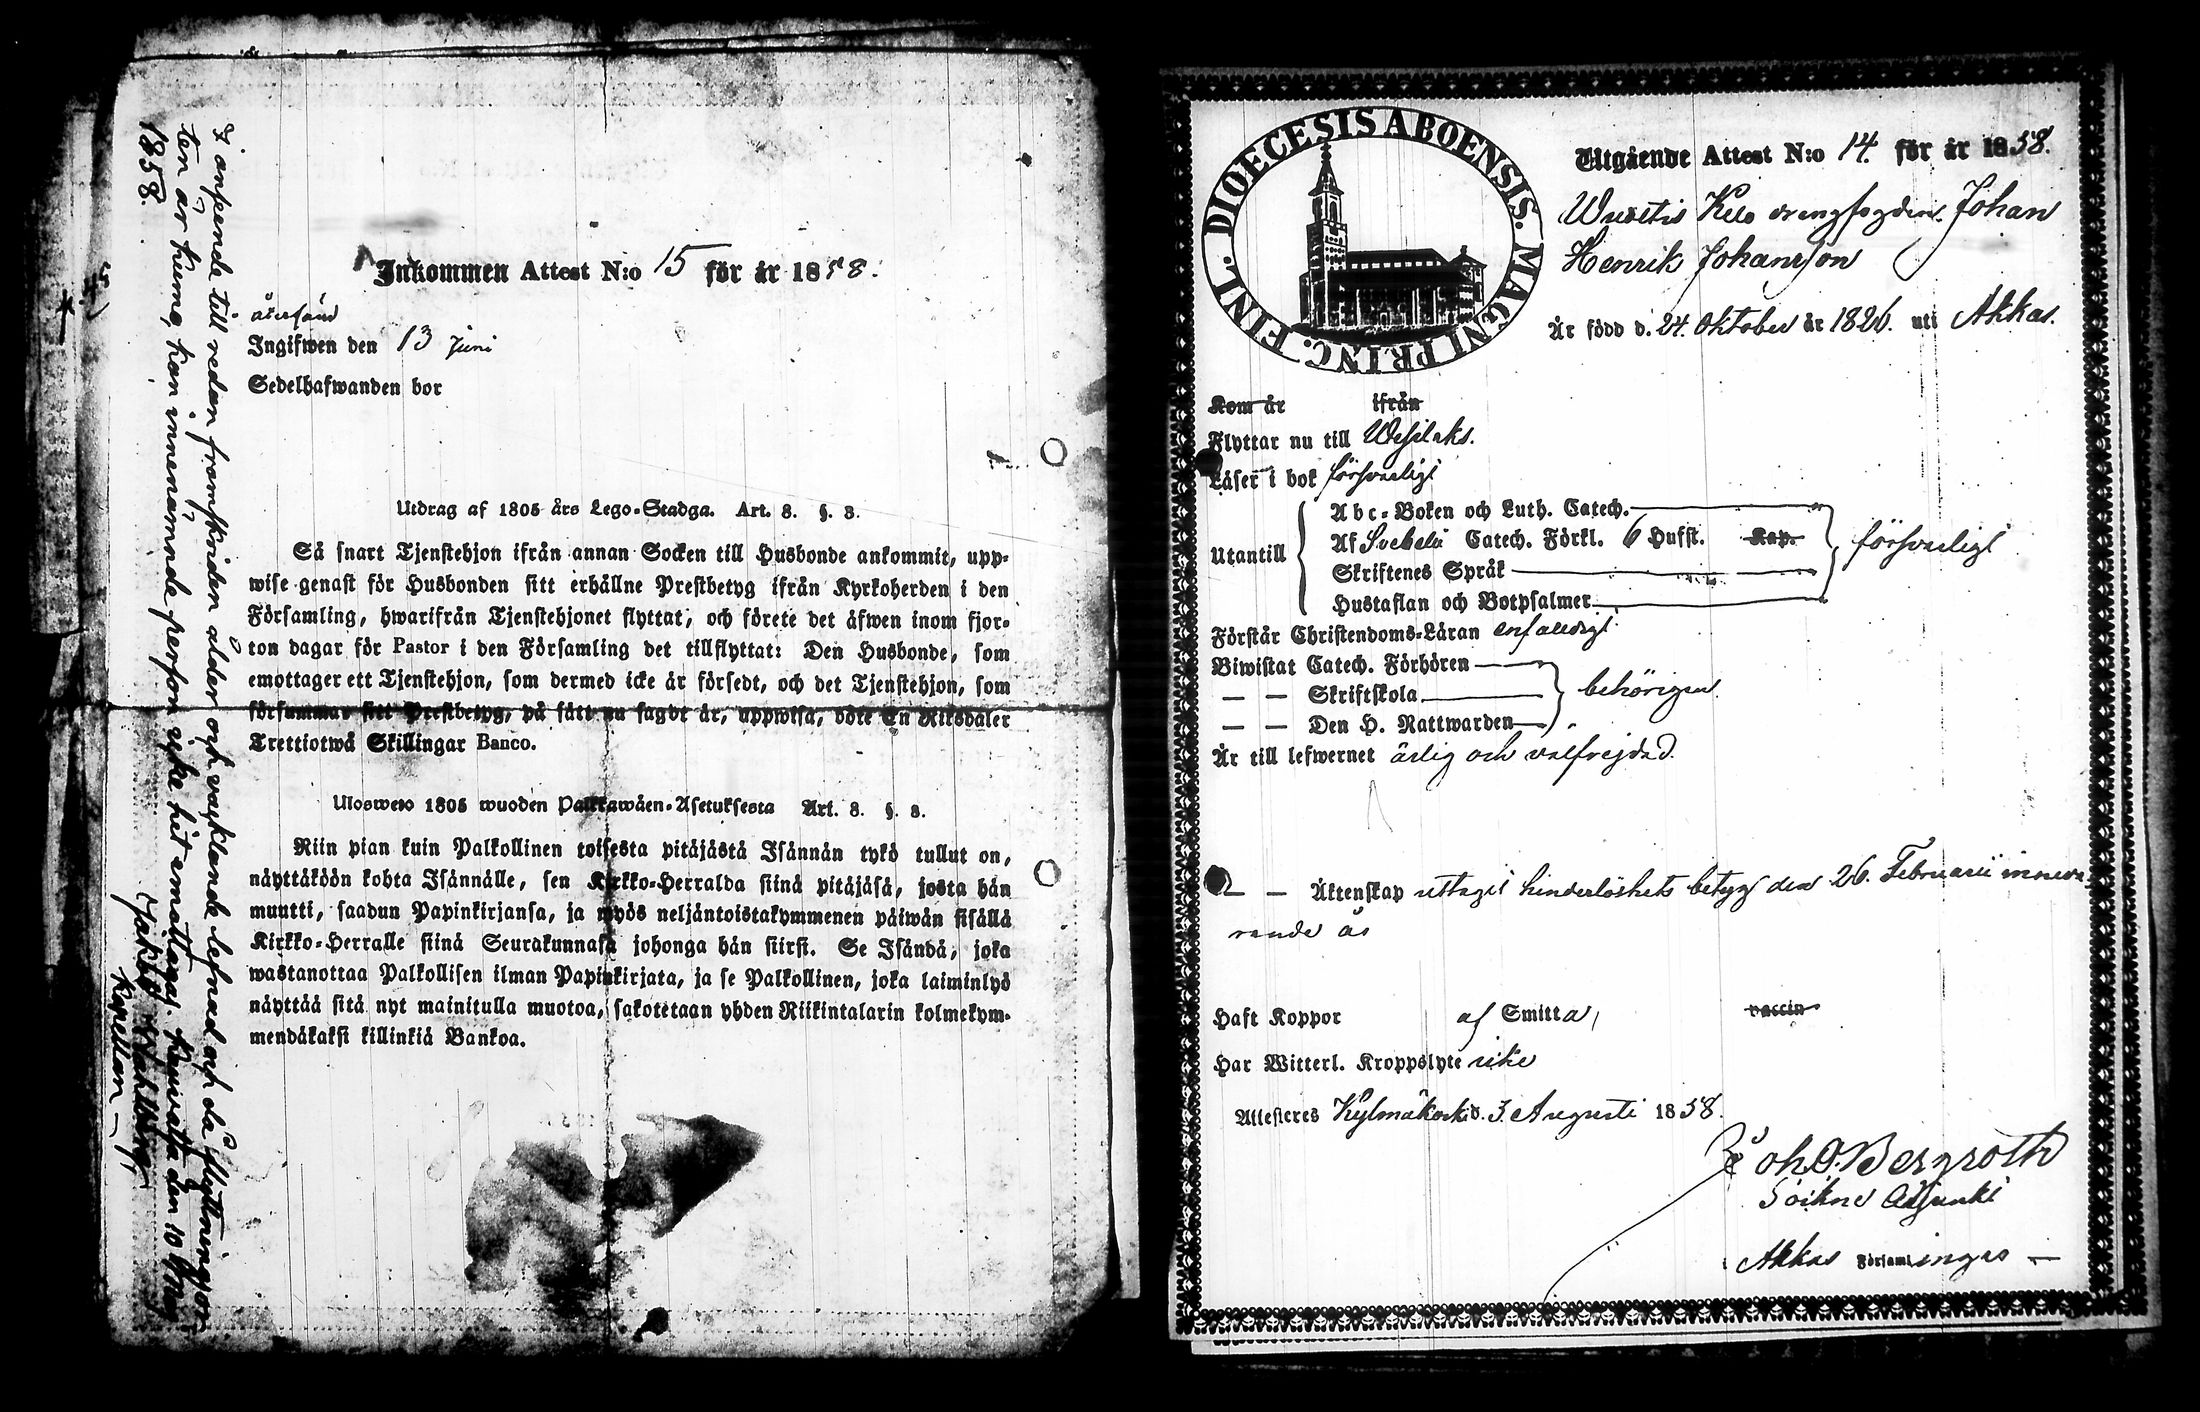 Inkommen Attest N:o 15 för år 1858.
återsänd
Ingifwen den 13 Juni
Sedelhafwanden bor
Utdrag af 1805 års Lego-Stadga. Art. 8. §. 3.
Så snart Tjenstehjon ifrån annan Socken till Husbonde ankommit, upp-
wise genast för Husbonden sitt erhållne Prestbetyg ifrån Kyrkoherden i den
Församling, hwarifrån Tjenstehjonet flyttat, och förete det äfwen inom fjor-
ton dagar för Pastor i den Församling det tillflyttat: Den Husbonde, som
emottager ett Tjenstehjon, som dermed icke är försedt, och det Tjenstehjon, som
försummar sitt Prestbetyg, på sätt nu sagdt är, uppwisa, böte En Riksdaler
Trettiotwå Skillingar Banco.
Ulosweto 1805 wuoden Palkkawäen-Asetuksesta Art. 8. §. 3.
Niin pian kuin Palkollinen toisesta pitäjästä Isännän tykö tullut on,
näyttäköön kohta Isännälle, sen Kirkko-Herralda siinä pitäjäsä, josta hän
muutti, saadun Papinkirjansa, ja myös neljäntoistakymmenen päiwän sisällä
Kirkko-Herralle siinä Seurakunnasa johonga hän siirsi. Se Isändä, joka
wastanottaa Palkollisen ilman Papinkirjata, ja se Palkollinen, joka laiminlyö
näyttää sitä nyt mainitulla muotoa, sakotetaan yhden Riikintalarin kolmekym-
mendäkaksi killinkiä Bankoa.
I anseende till redan framskriden ålder och vacklande lefnad och då flyttningsor
ten är kunna, kan innenämnde person icke hit emottagas. den 10 Maj
1858.
Jakob
Kapellan
DIOECESIS ABOENSIS. MAGNI PRINC. FINL.
Utgående Attest N:o 14. för år 1858.
drengfogden Johan
Henrik Johansson
Är född d. 24. Oktober år 1826. uti Akkas.
Kom år ifrån
Flyttar nu till Wesilaks.
Läser i bok försvarligt
Utantill
Abc-Boken och Luth. Catech.
Af Svebelii Catech. Förkl. 6 Hufst. Kap.
Skriftenes Språk
Hustaflan och Botpsalmer
försvarligt
Förstår Christendoms-Läran enfaldigt
Biwistat Catech. Förhören
— — Skriftskola
— — Den H. Nattwarden
behörigen
Är till lefwernet ärlig och välfrejdad.
— — Äktenskap uttagit hinderlöshets betyg den 26. Februarii inneva
rande år
Haft Koppor af Smitta, vaccin
Har Witterl. Kroppslyte icke
Attesteras Kylmäkoski d. 3 Augusti 1858.
Joh. O. Bergroth
Sockne Adjunkt
i Akkas Församlingar —